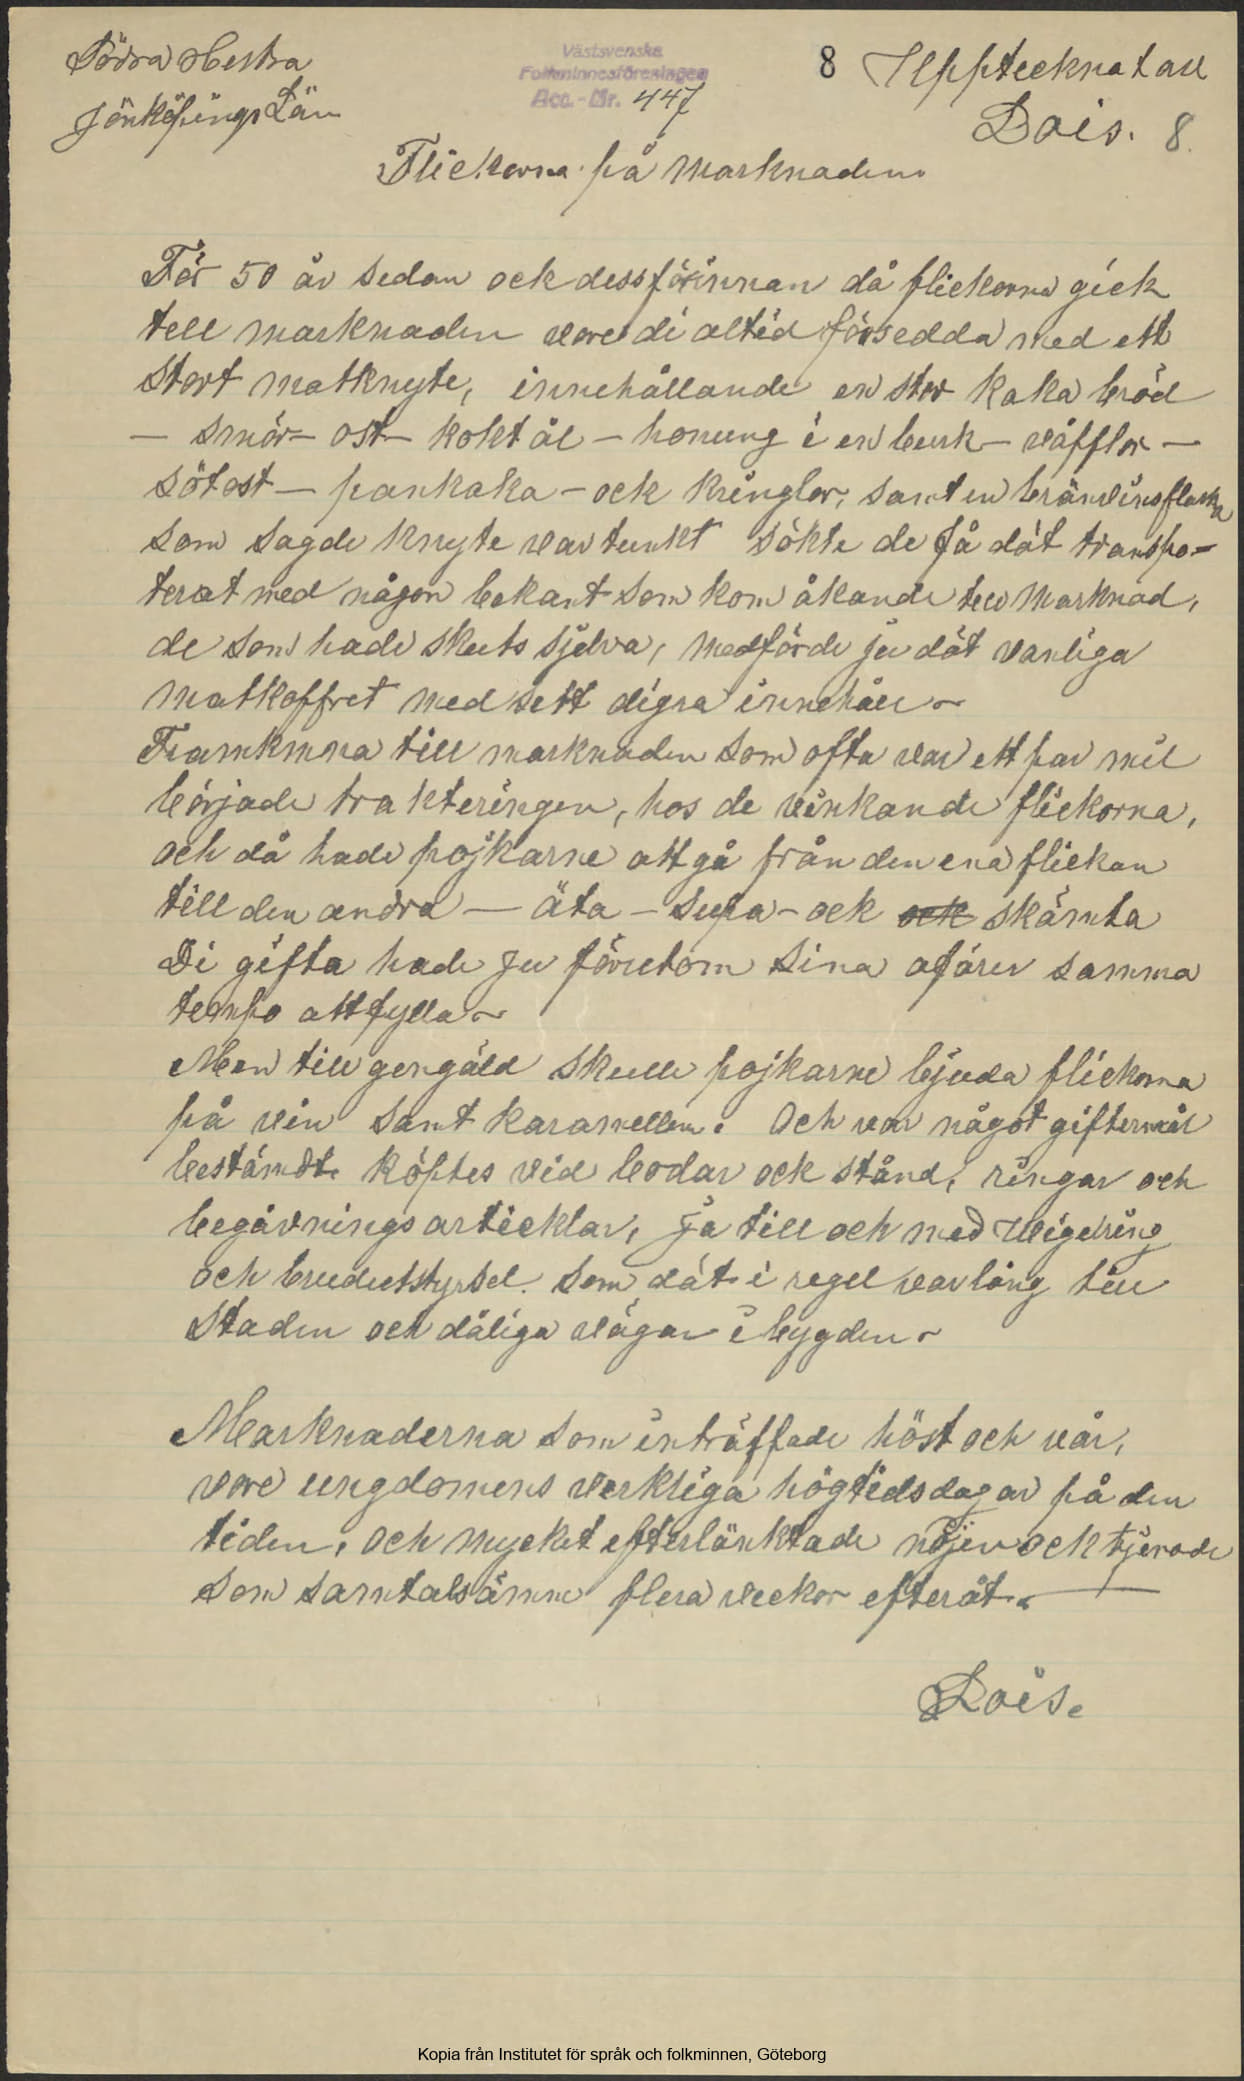 Södra Hestra
Jönköpings Län
Västsvenska
Folkminnesföreningen
Acc.-Nr. 447
8 Upptecknat av
Dois. 8.
Flickorna på marknaden.
För 50 år sedan ock dessförinnan då flickorna gick
tell marknaden vore di altid försedda med ett
stort matknyte, innehållande en stor kaka bröd
— smör — ost — kokt ål — honung i en burk — våfflor —
sötost — pankaka — ock kringlor, samt en brännvinsflaska
som sagde knyte var tunkt sökte de få dät transpo-
terat med någon bekant som kom åkande till marknad,
de som hade skuts sjelva, medförde ju dät vanliga
matkoffret med sett digra innehåll
Framkmna till marknaden som ofta var ett par mil
började trakteringen, hos de vinkande flickorna,
och då hade pojkarne att gå från den ena flickan
till den andra — äta — supa — ock ock skämta
Di gifta hade ju förutom sina afärer samma
tempo att fylla
Men till gengäld skulle pojkarne bjuda flickorna
på vin samt karameller. Och var något giftermål
bestämdt. köptes vid bodar ock stånd, ringar och
begåvningsartiklar, ja till och med vigelring
och brudutstyrsel. som dät i regel var lång till
staden och dåliga vägar i bygden

Marknaderna som inträffade höst och vår,
vore ungdomens verkliga högtidsdagar på den
tiden, och mycket efterlänktade nöjen ock tjenade
som samtalsämne flera veckor efteråt.
Dois.
Kopia från Institutet för språk och folkminnen, Göteborg